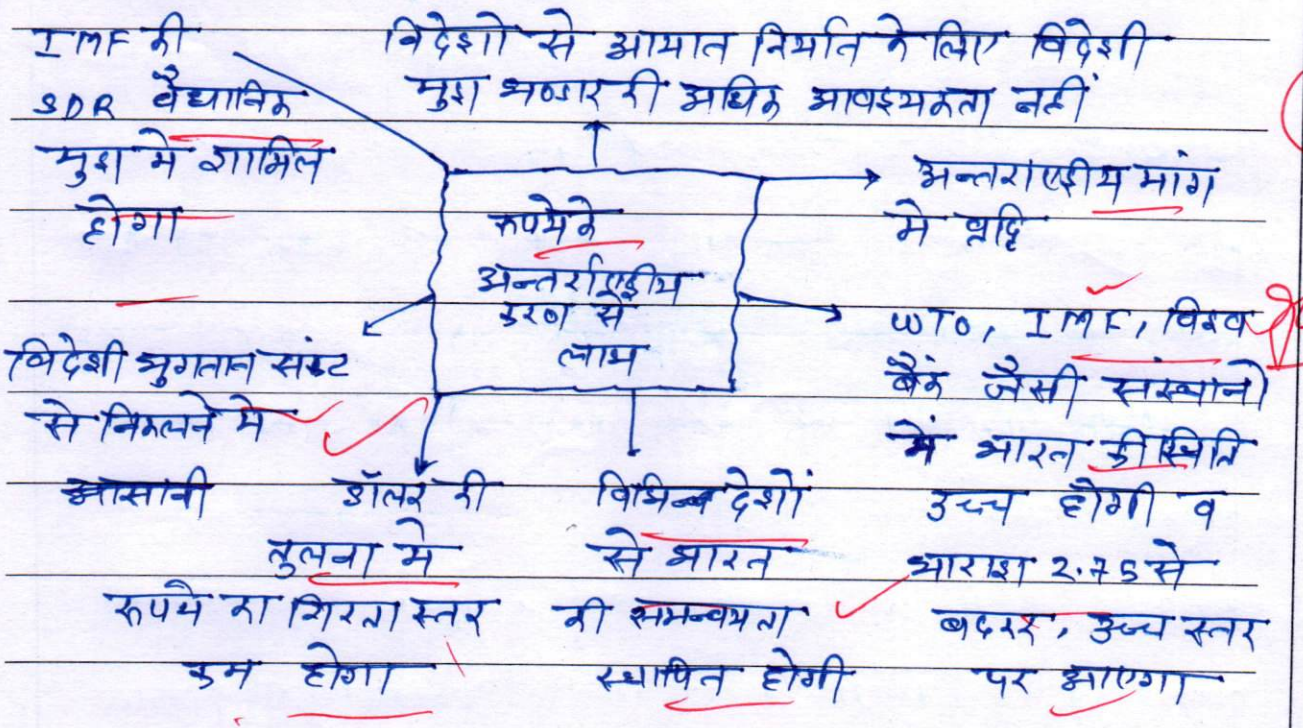 IMF की
SDR वैधानिक
मुद्रा मे शामिल
होगा
विदेशो से आयात निर्यात के लिए विदेशी
मुद्रा भण्डार की अधिक आवश्यकता नहीं
अन्तराष्ट्रीय मांग
मे वृद्धि
रूपये के
अन्तर्राष्ट्रीय
करण से
लाभ
WTO, IMF, विश्व
बैंक जैसी संस्थानो
में भारत की स्थिति
उच्च होगी व
भारांश 2.75 से
बढ़कर, उच्च स्तर
पर आएगा
विदेशी भुगतान संकट
से निकलने मे
आसानी
डॉलर की
तुलना मे
रूपये का गिरता स्तर
कम होगा
विभिन्न देशों
से भारत
की समन्वयता
स्थापित होगी